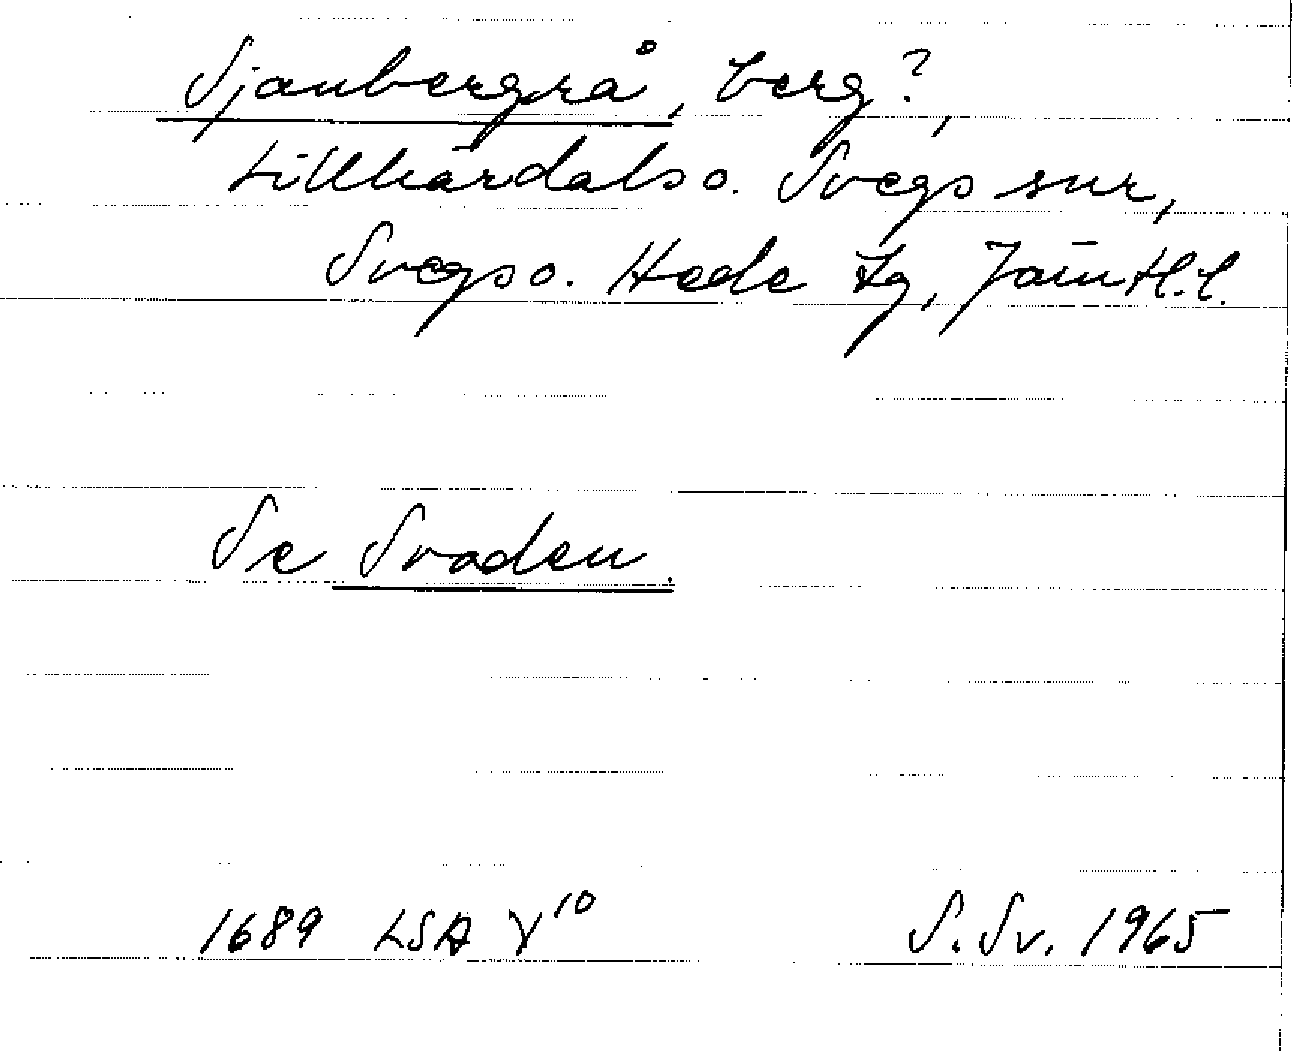 Sjanbergrå, berg?,
Lillhärdals o. Svegs snr,
Svegs o. Hede tg, Jämtl. l.
Se Svaden.
1689 LSA Y10 S. Sv. 1965